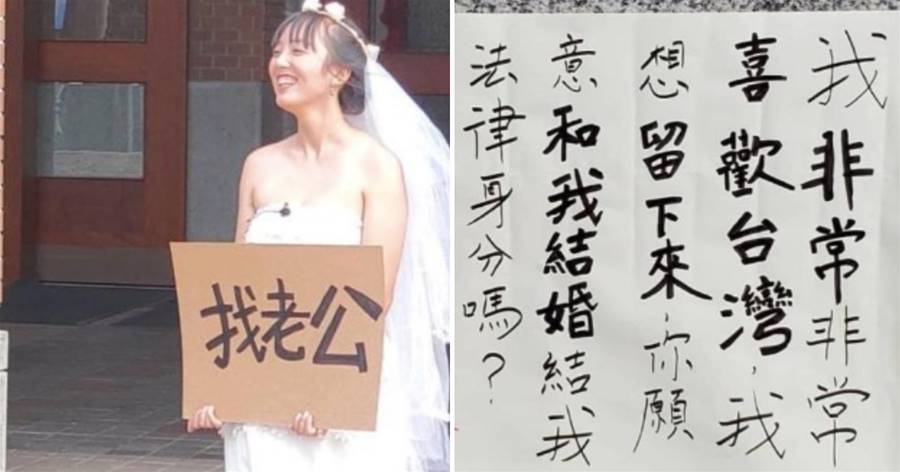 找老公
我非常非常
喜歡台灣,我
想留下來,你願
意和我結婚結我
法律身分嗎?